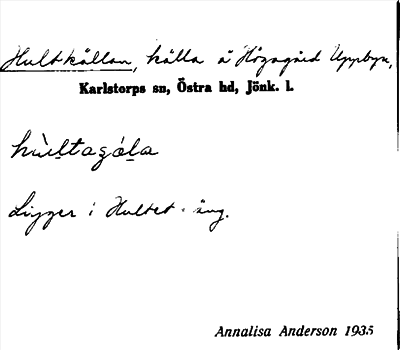 Hultkällan, källa å Högagärd Uppbyn,
Karlstorps sn, Östra hd, Jönk. l.
hùltaçǻla
Ligger i Hultet. äng.
Annalisa Anderson 1935